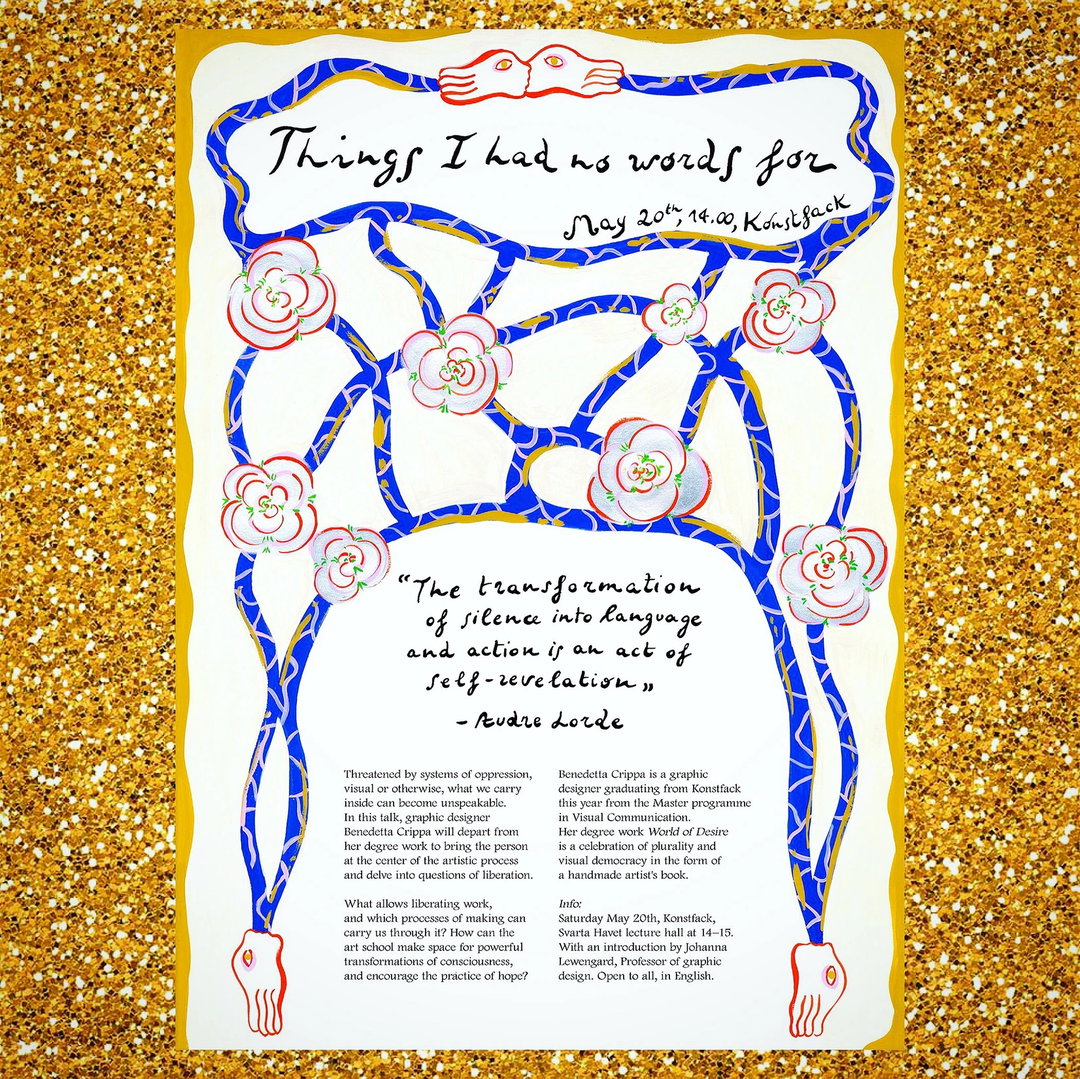 Things I had no words for
May 20th, 14.00, Konstfack
“The transformation
of silence into language
and action is an act of
self-revelation„
- Audre Lorde
Threatened by systems of oppression,
visual or otherwise, what we carry
inside can become unspeakable.
In this talk, graphic designer
Benedetta Crippa will depart from
her degree work to bring the person
at the center of the artistic process
and delve into questions of liberation.
What allows liberating work,
and which processes of making can
carry us through it? How can the
art school make space for powerful
transformations of consciousness,
and encourage the practice of hope?
Benedetta Crippa is a graphic
designer graduating from Konstfack
this year from the Master programme
in Visual Communication.
Her degree work World of Desire
is a celebration of plurality and
visual democracy in the form of
a handmade artist's book.
Info:
Saturday May 20th, Konstfack,
Svarta Havet lecture hall at 14–15.
With an introduction by Johanna
Lewengard, Professor of graphic
design. Open to all, in English.